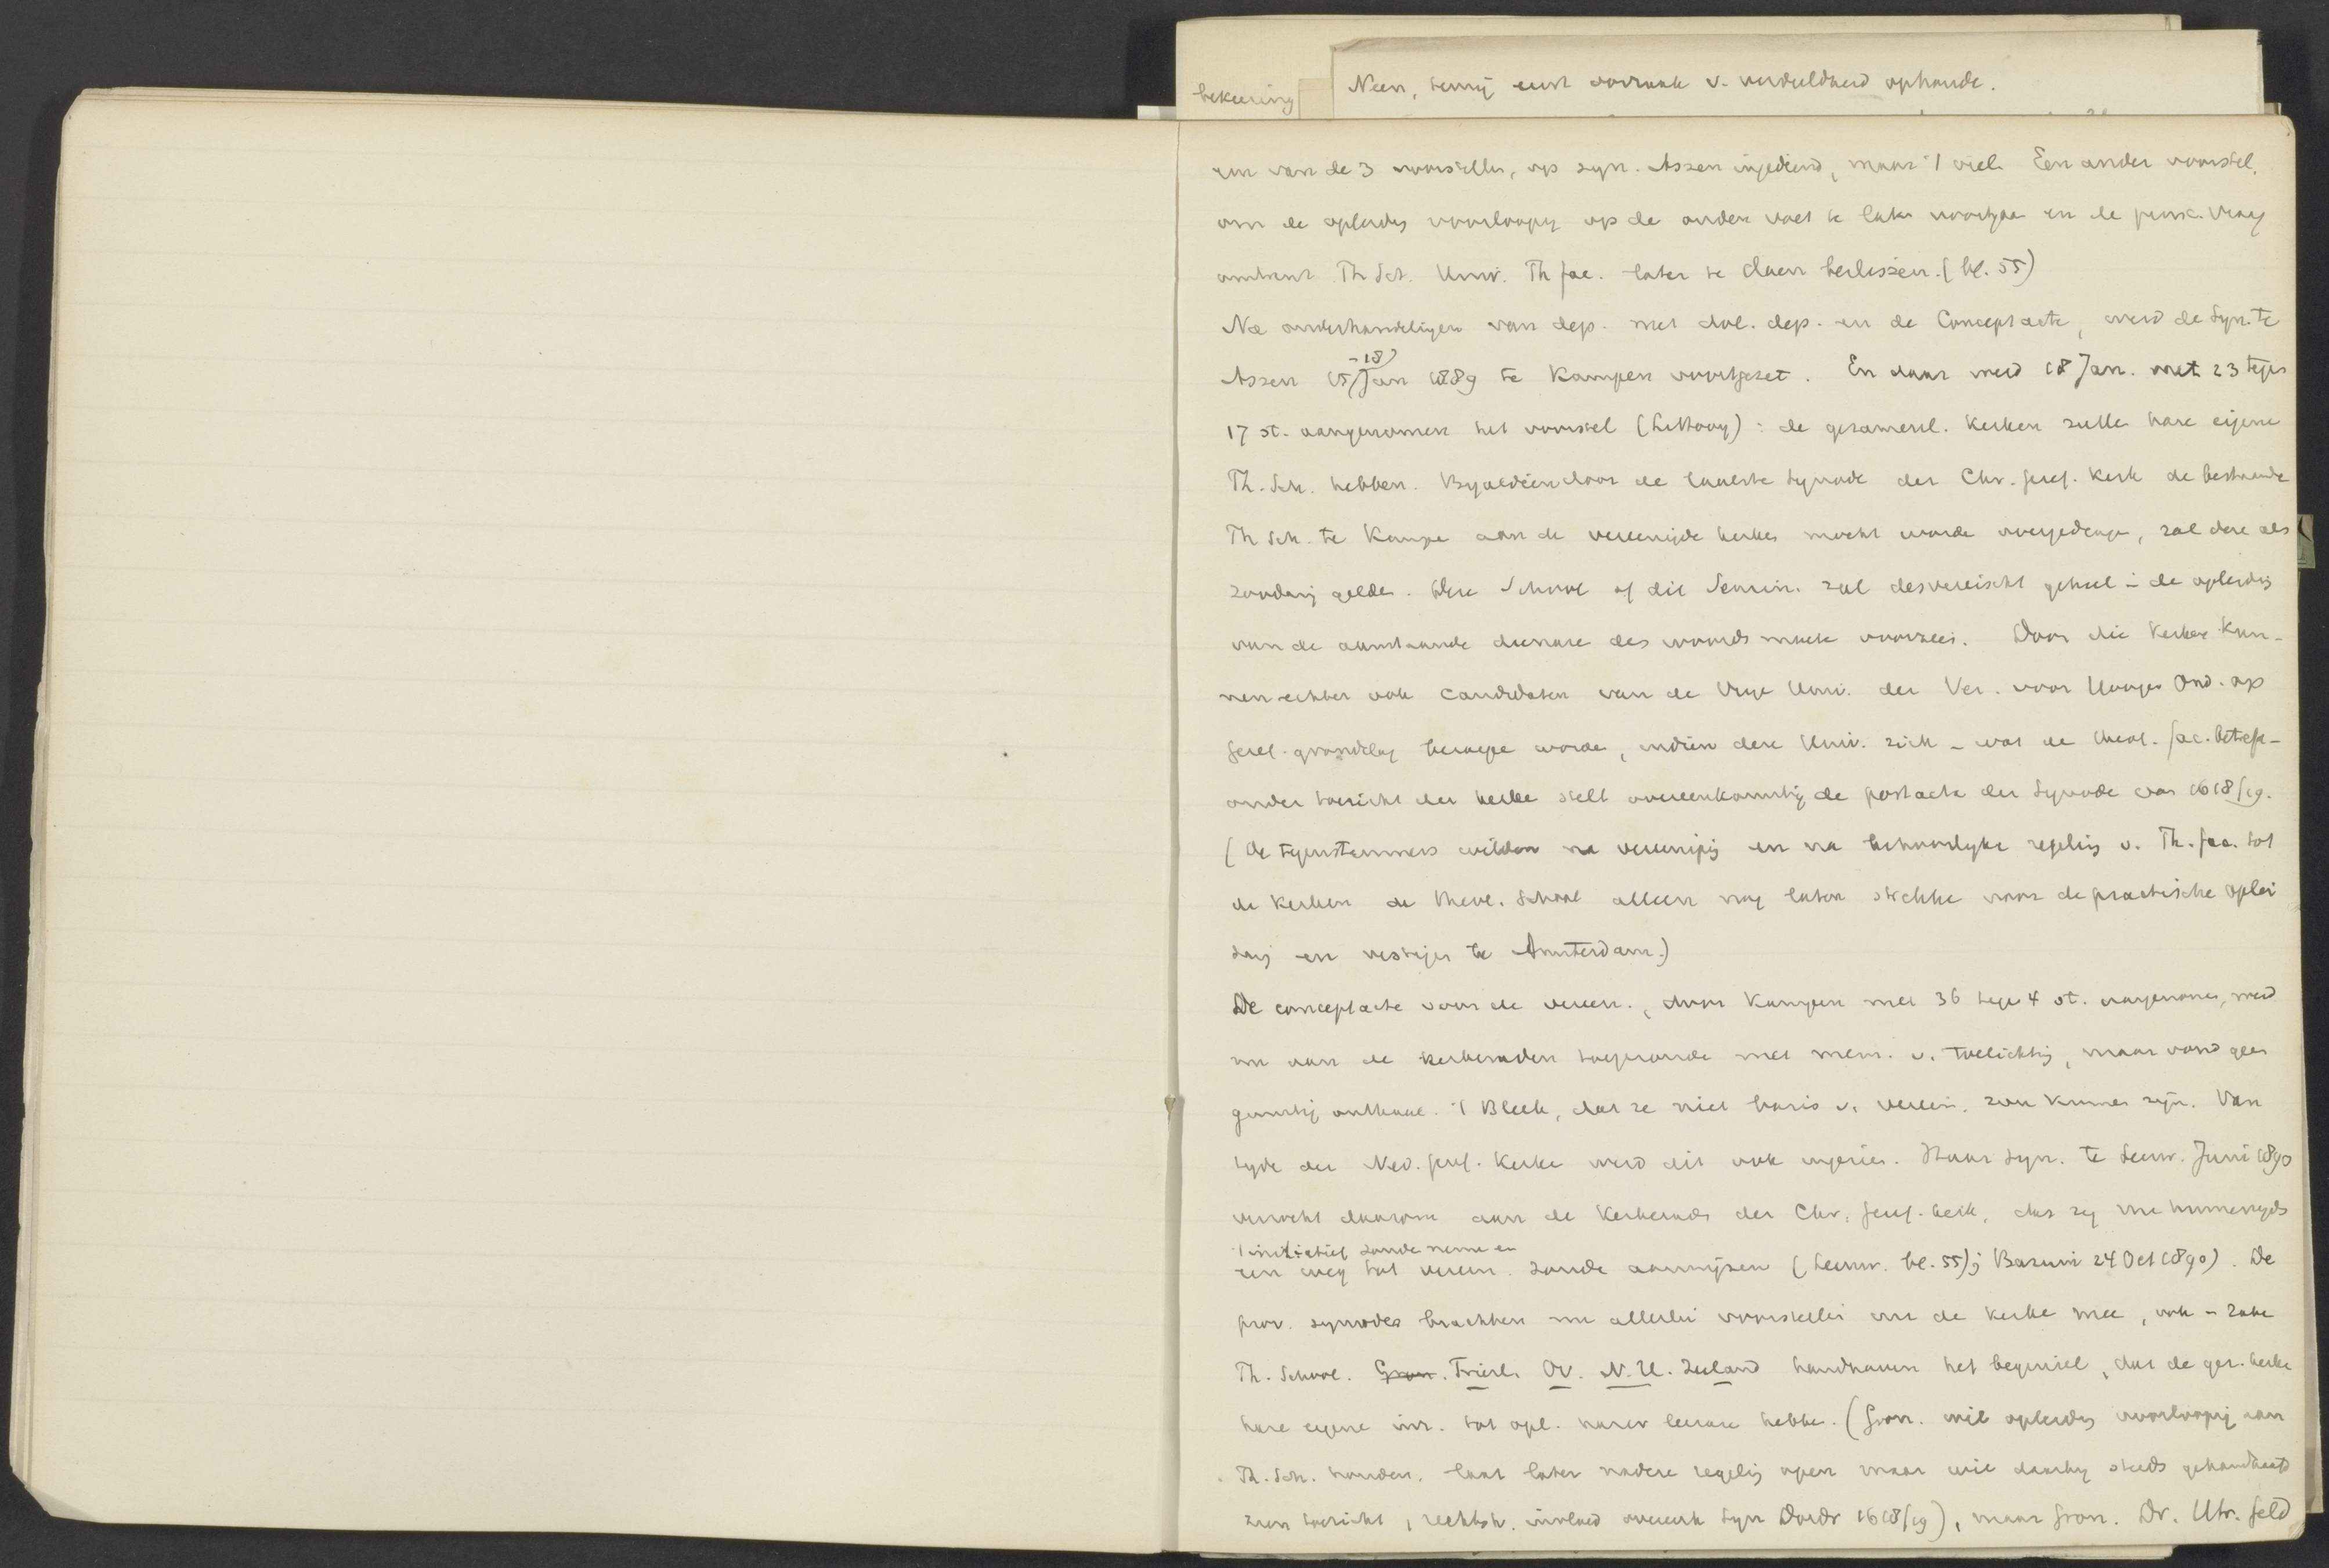 bekeering
Neen, tenzij eerst oorzaak v. verdeeldheid ophoude.
een van de 3 voorstellen, op syn. Assen ingediend, maar 't viel. Een ander voorstel,
om de opleidg voorloopig op de ouden voet te laten voortgaan en de princ. vraag
omtrent Th Sch. Univ. Th fac. later te doen beslissen. (bl. 55)
Na onderhandeligen van dep. met dol. dep. en de Conceptacte, werd de Syn. te
-18)
Assen 15/Jan 1889 te Kampen voortgezet. En daar werd 18 Jan. met 23 tegen
17 st. aangenomen het voorstel (Littooy): de gezamenl. Kerken zulle hare eigene
Th. Sch. hebben. Byaldien door de laatste Synode der Chr. Geref. Kerk de bestaande
Th Sch. te Kampe aan de vereenigde kerken mocht worde overgedrage, zal deze als
zoodanig gelde. Deze School of dit Semin. zal desvereischt geheel in de opleidig
van de aanstaande dienare des woords moete voorzien. Door die Kerken kun-
nen echter ook candidaten van de Vrije Univ. der Ver. voor Hooger Ond. op
Geref. grondslag beroepe worde, indien deze Univ. zich - wat de theol. fac. betreft -
onder toezicht der kerke stelt overeenkomstig de postacta der Synode van 1618/19.
(De tegenstemmers wilden na vereenigig en na behoorlyke regelig v. Th. fac. tot
de Kerken de theol. School alleen nog laten strekke voor de practische oplei
ding en vestigen te Amsterdam.)
De conceptacte voor de vereen., door Kampen met 36 tege 4 st. aangenomen, werd
nu aan de kerkeraden toegezonde met mem. v. toelichtig, maar vond geen
gunstig onthaal. 't Bleek, dat ze niet basis v. vereen. zou kunnen zijn. Van
zyde der Ned. Geref. Kerke werd dit ook ingezien. Haar Syn. te Leeuw. Juni 1890
verzocht daarom aan de Kerkeraden der Chr. Geref. kerk, dat zy
't initiatief zoude neme en
een weg tot vereen. zoude aanwijzen (Leeuw. bl. 55); Bazuin 24 Oct 1890). De
prov. synodes brachten nu allerlei voorstellen om de kerke mee, ook in zake
Th. School. Gron. Friesl. Ov. N.H. Zeeland handhaven het beginsel, dat de ger. kerke
hare eigene inr. tot opl. harer leerare hebbe. (Gron. wil opleidig voorloopig aan
Th. Sch. houden, laat later nadere regelig open maar wil daarby steeds gehandhaafd
zien toezicht, rechtstr. invloed overeenk Syn Dordr 1618/19), maar Gron. Dr. Utr. Geld